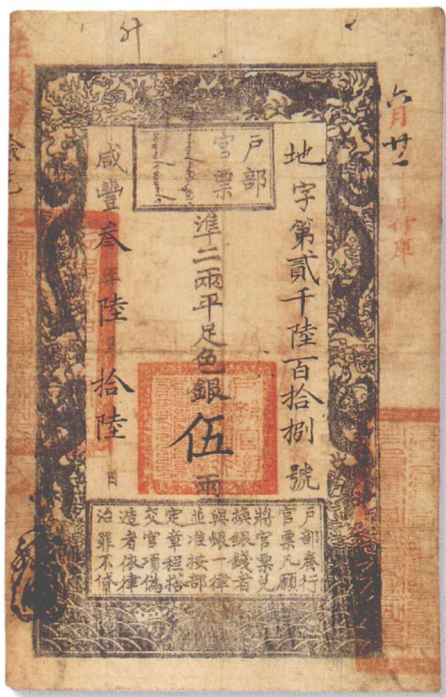 六月廿一日付庫
地字第貳千陸百拾捌號
户部
官票
準二兩平足色銀伍兩
咸豐叁年陸月拾陸日
户部奏行
官票凡願
將官票兌
換銀錢者
與銀一律
並准按部
定章程搭
交官項偽
造者依律
治罪不貸